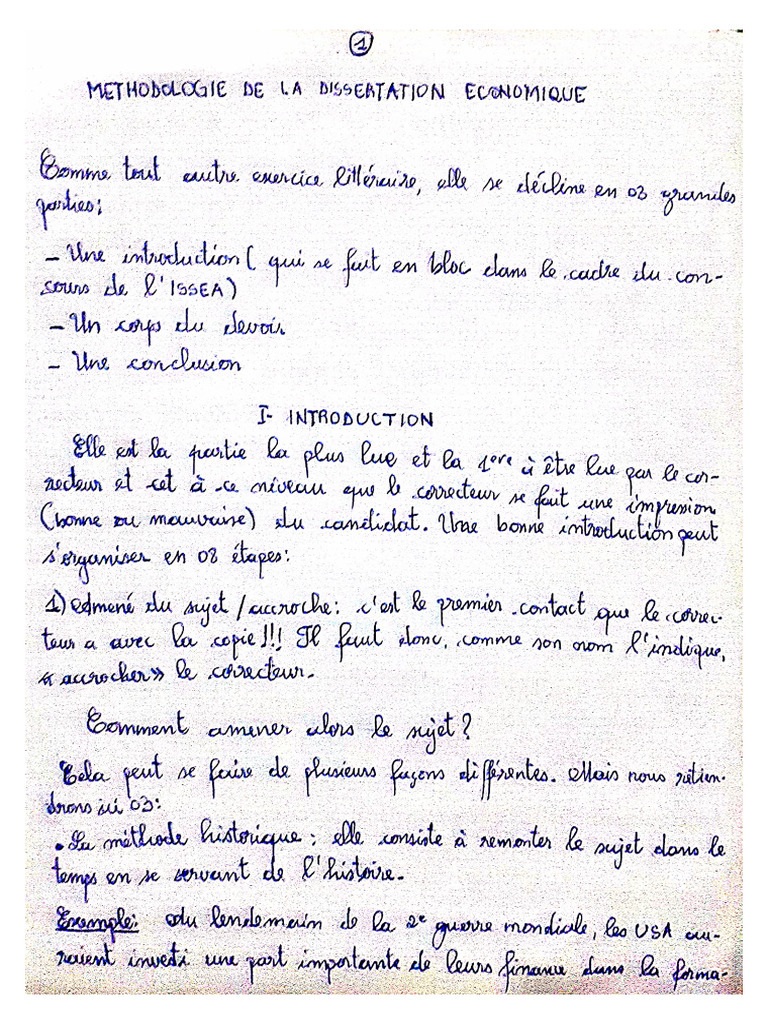 1
METHODOLOGIE DE LA DISSERTATION ECONOMIQUE
Comme tout autre exercice littéraire, elle se décline en 03 grandes
parties:
- Une introduction ( qui se fait en bloc dans le cadre du con-
cours de l'ISSEA)
- Un corps du devoir
- Une conclusion
I- INTRODUCTION
Elle est la partie la plus lue et la 1ere à être lue par le cor-
recteur et cet à ce niveau que le correcteur se fait une impression
(bonne ou mauvaise) du candidat. Une bonne introduction peut
s'organiser en 08 étapes:
1) Amené du sujet / accroche: c'est le premier contact que le correc-
teur a avec la copie!!! Il faut donc, comme son nom l'indique,
« accrocher » le correcteur.
Comment amener alors le sujet?
Cela peut se faire de plusieurs façons différentes. Mais nous retien-
drons ici 03:
• La méthode historique: elle consiste à remonter le sujet dans le
temps en se servant de l'histoire.
Exemple: Au lendemain de la 2e guerre mondiale, les USA au-
raient investi une part importante de leurs finance dans la forma-